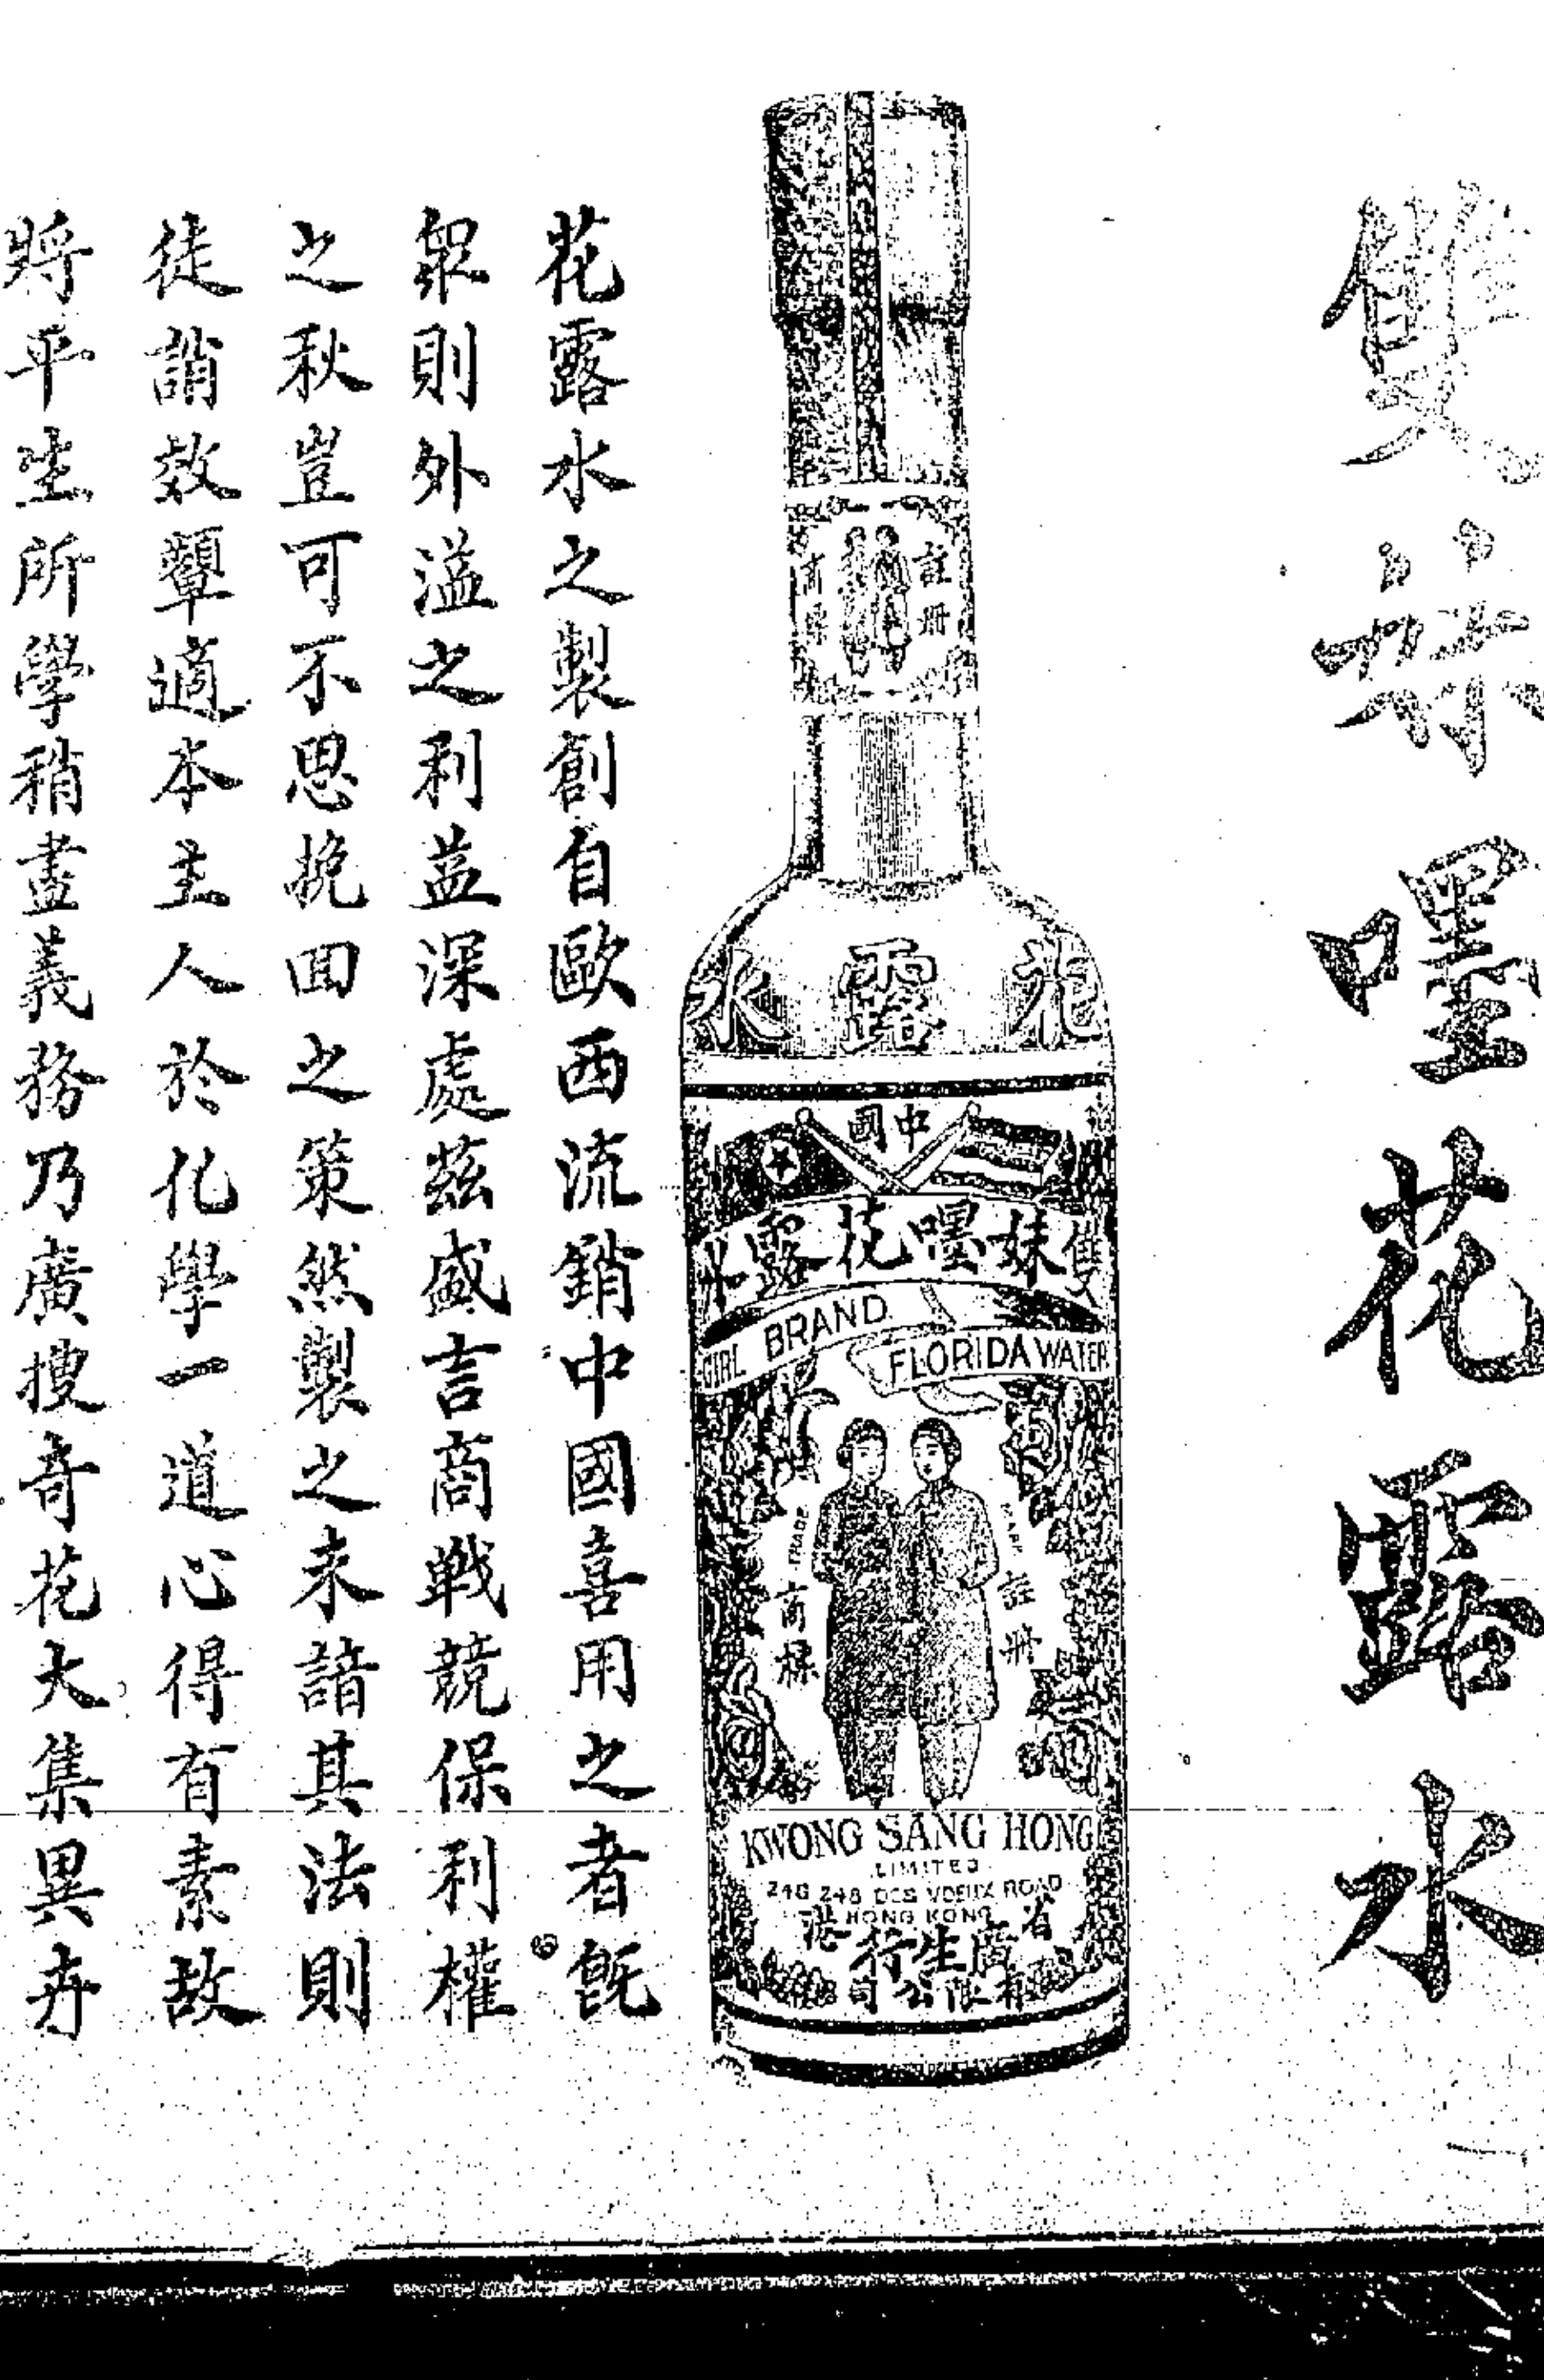 雙妹嚜花露水
註冊
商標
花露水
中國
雙妹嚜花露水
GIRL BRAND
FLORIDA WATER
TRADE MARK
商標
註冊
KWONG SANG HONG
LIMITED
246 248 DES VOEUX ROAD
HONG KONG
省港
廣生行
有限公司
花露水之製創自歐西流銷中國喜用之者旣
眾則外溢之利益深處茲盛言商戰競保利權
之秋豈可不思挽回之策然製之未諳其法則
徒誚效顰適本主人於化學一道心得有素故
將平生所學稍盡義務乃廣搜奇花大集異卉